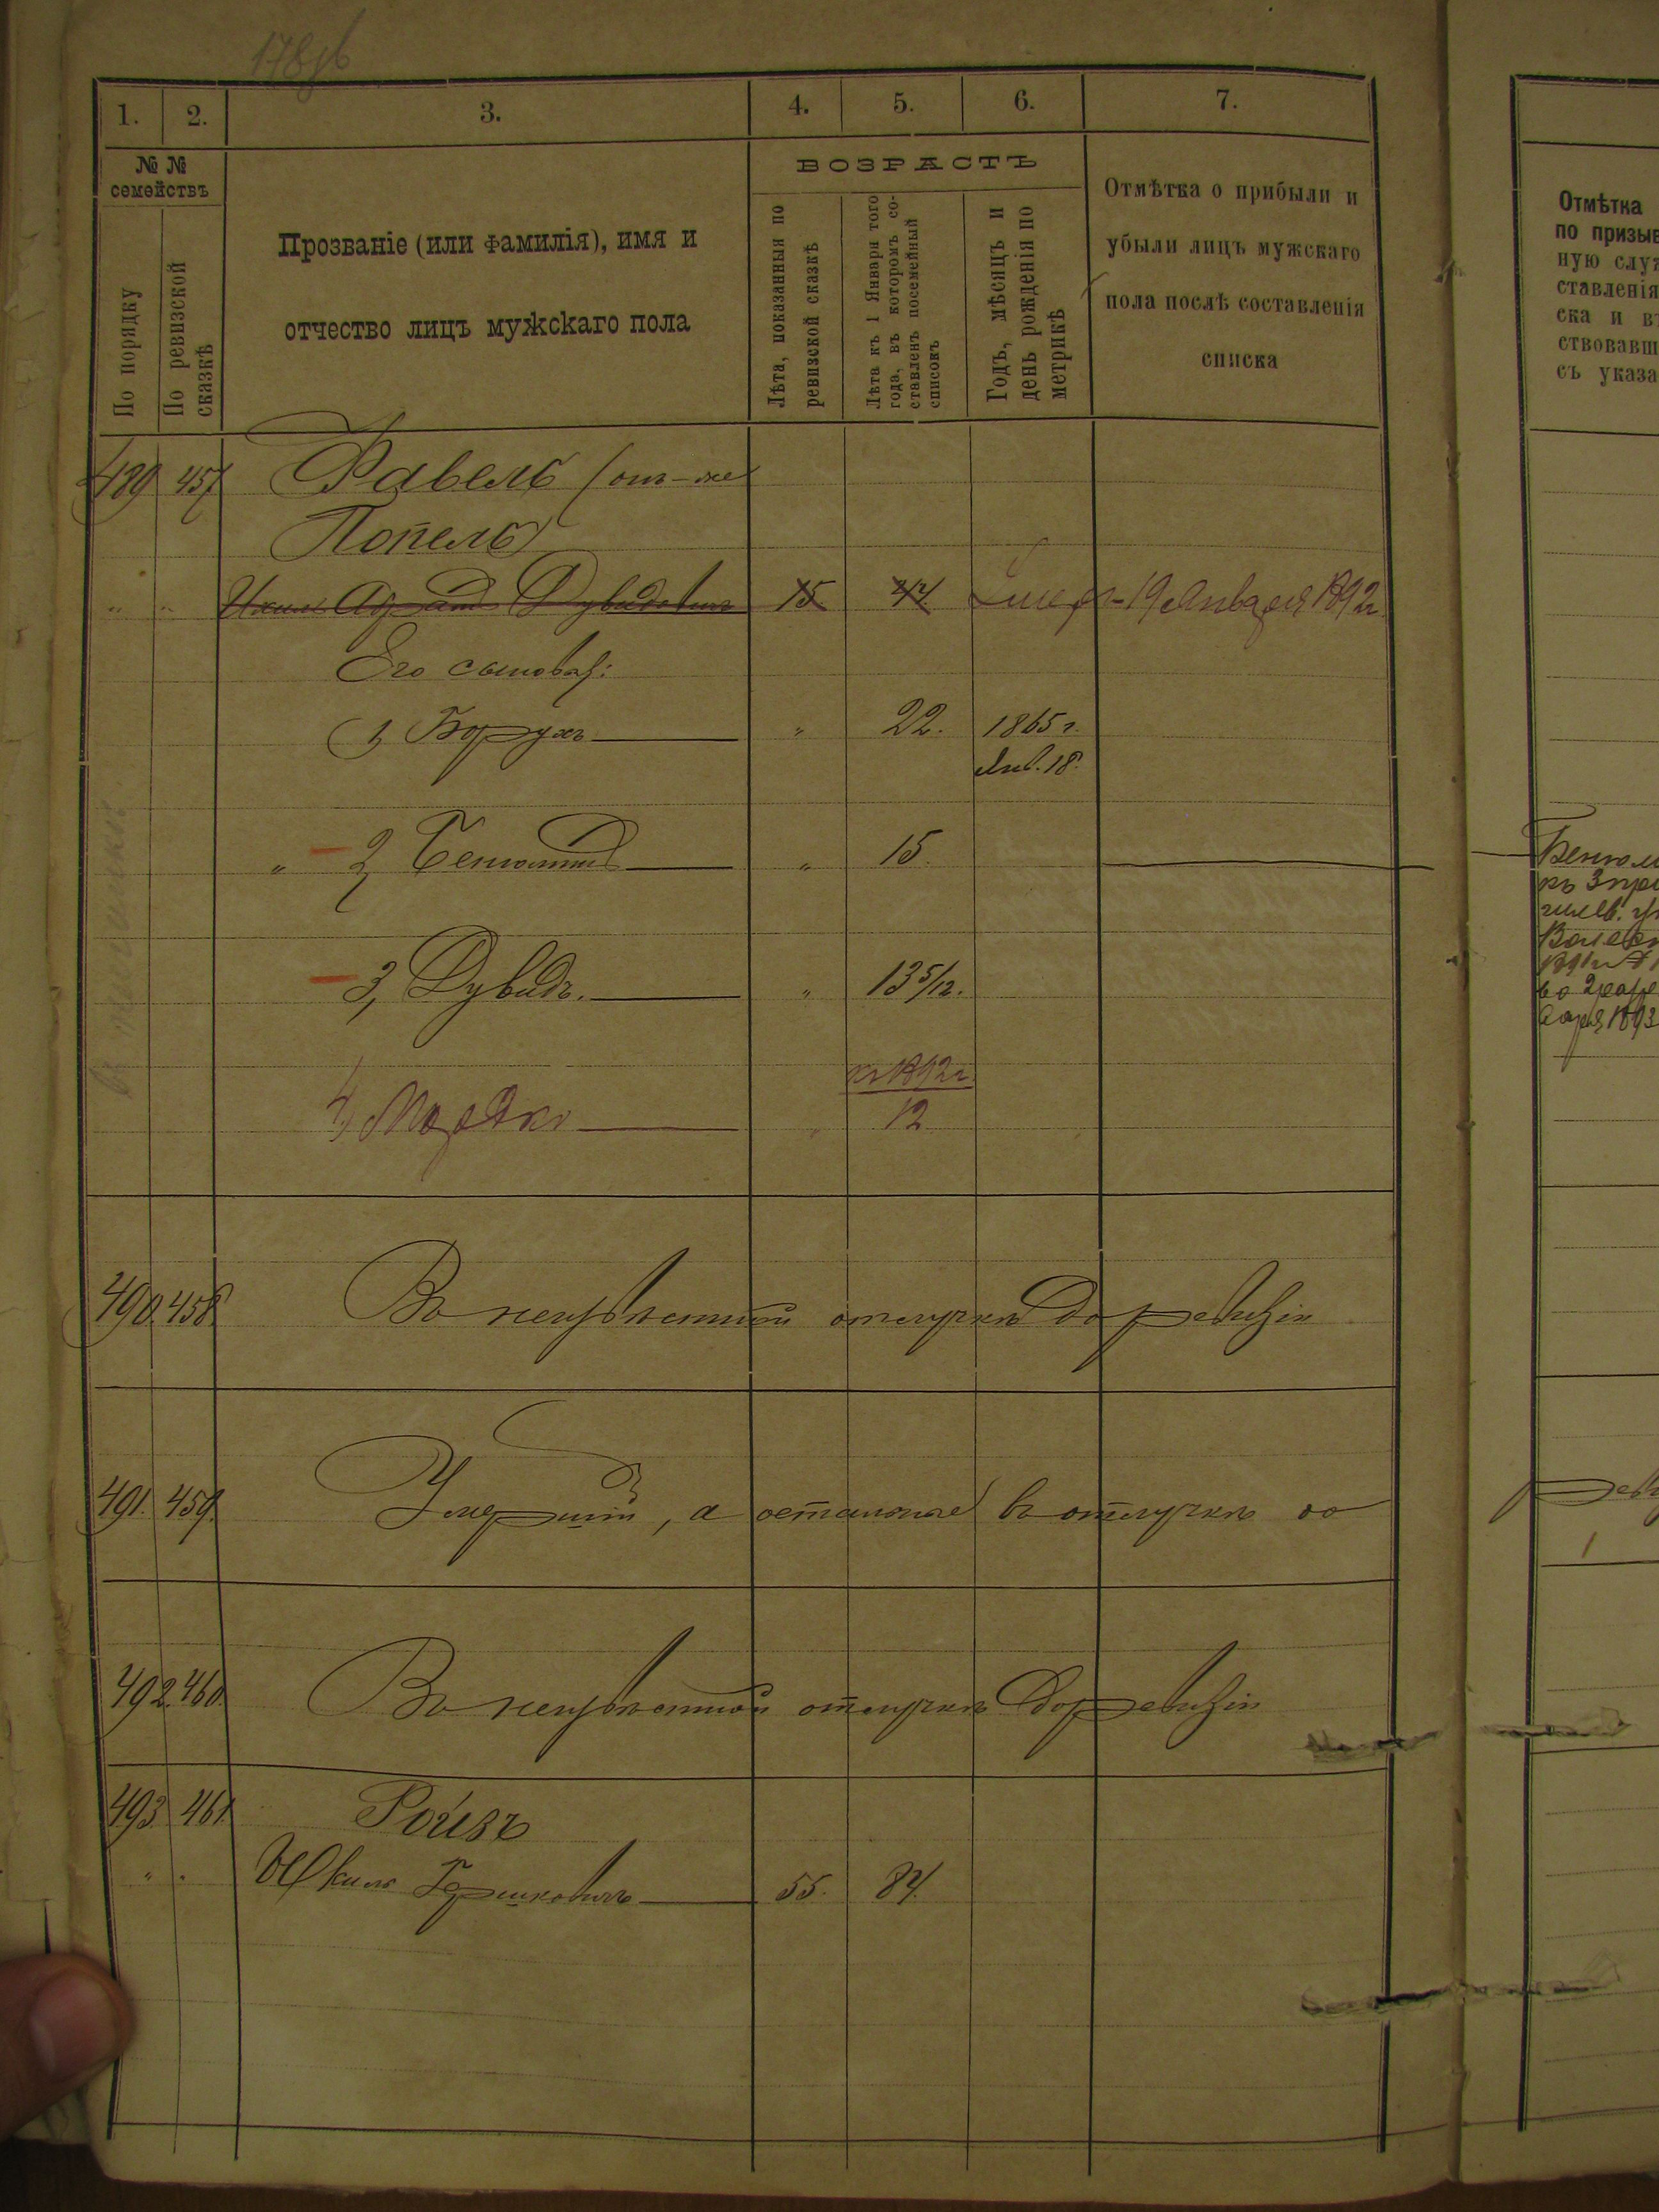 178об
1. 2. 3. 4. 5. 6. 7.
№ №
семействъ
По порядку
По ревизской сказкѣ
Прозваніе (или фамилія), имя и
отчество лицъ мужскаго пола
ВОЗРАСТЪ
Лѣта, показанныя по
ревизской сказкѣ
Лѣта къ 1 Января того
года, въ которомъ со-
ставленъ посемейный
списокъ
Годъ, мѣсяцъ и
день рожденія по
метрикѣ
Отмѣтка о прибыли и
убыли лицъ мужскаго
пола послѣ составленія
списка
489 457 Фавель (онъ-же
Попель)
" " Дувидовичъ 15 44 умеръ 19 Января 1892 г.
Его сыновья:
1, Борухъ " 22. 1865 г.
Янв. 18.
" 2, " 15.
3, Дувидъ. " 13 5/12.
къ 1892 г.
4, Мордко " 12
490. 458. Въ неизвѣстной отлучкѣ до ревизіи
491. 459. Умершій, а остальные въ отлучкѣ до
492. 460. Въ неизвѣстной отлучкѣ до ревизіи
493. 461. Ройзъ
" " Гершковичъ 55. 84.
Отмѣтка
по призыв
ную служ
ставленія
ска и въ
ствовавш
съ указа
къ 3 при